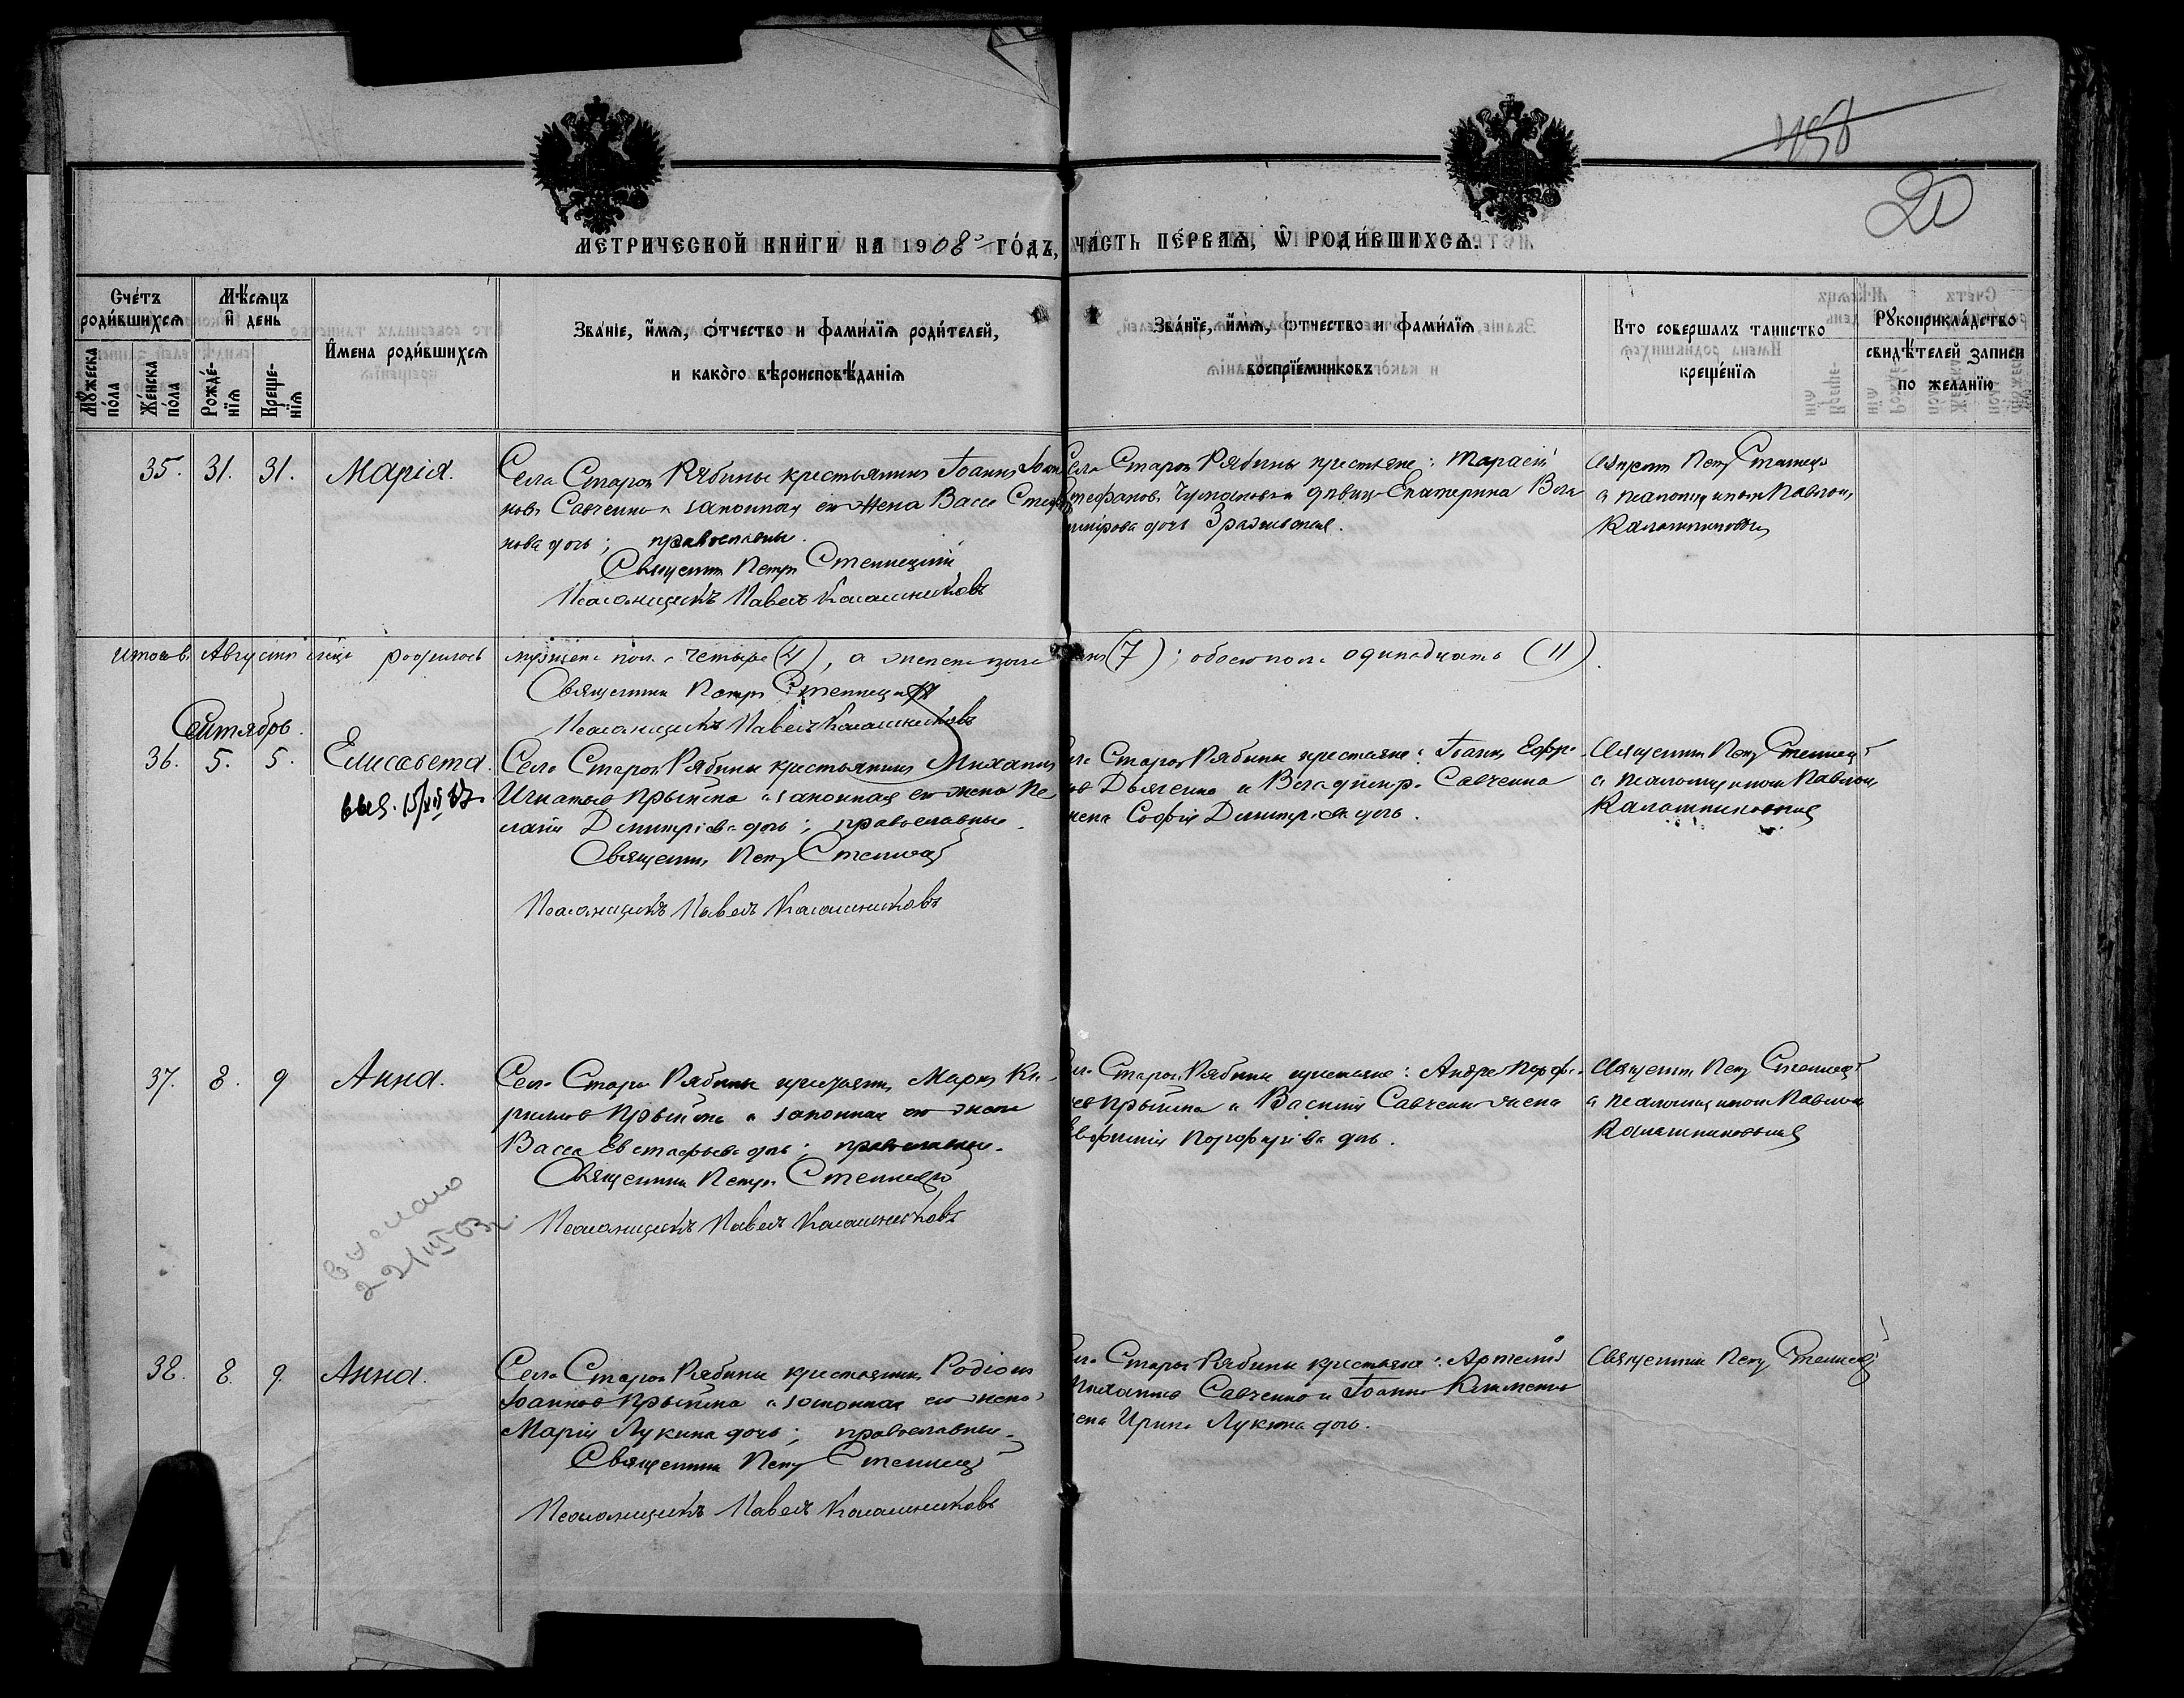 458
20
МЕТРИЧЕСКОЙ КНИГИ НА 1908 ГОДЪ, ЧАСТЬ ПЕРВАЯ, Ѿ РОДИВШИХСЯ.
Счетъ родившихся
Мѣсяцъ и день
Имена родившихся
Званіе, имя, отчество и фамилія родителей,
и какого вѣроисповѣданія
Званіе, имя, отчество и фамилія
воспріемниковъ
Кто совершалъ таинство
крещенія
Рукоприкладство
свидѣтелей записи
по желанію
Мужеска пола
Женска пола
Рожденія
Крещенія
35. 31. 31. Марія.
Села Старой Рябины крестьянинъ Іоаннъ Іоан
новъ Савченко и законная его жена Васса Стефа
нова дочь; православные.
Священникъ Петръ Степпецкій
Псаломщикъ Павелъ Калашниковъ
Села Старой Рябины крестьяне: Тарасій
Стефановъ и дѣвица Екатерина Вла
димірова дочь
Священникъ Петръ
съ псаломщикомъ Павломъ
Калашниковымъ
Итого въ Августѣ мѣсяцѣ родилось мужеска пола четыре (4), а женска пола (7); обоего пола одинадцать (11).
Священникъ Петръ
Псаломщикъ Павелъ Калашниковъ
Сентябрь.
36. 5. 5. Елисавета.
Села Старой Рябины крестьянинъ Михаилъ
Игнатьевъ и законная его жена Пе
лагія Димитріева дочь; православные.
Священникъ Петръ
Псаломщикъ Павелъ Калашниковъ
Села Старой Рябины крестьяне: Іоаннъ Ефре
мовъ Дьяченко и Владиміра Савченка
жена Софія Димитріева дочь.
Священникъ Петръ
съ псаломщикомъ Павломъ
Калашниковымъ
37. 8. 9 Анна.
Села Старой Рябины крестьянинъ Маркъ Ки
рилловъ и законная его жена
Васса Евстафьева дочь; православные.
Священникъ Петръ
Псаломщикъ Павелъ Калашниковъ
Села Старой Рябины крестьяне: Андрей
и Василія Савченко жена
Евфимія Порфиріева дочь.
Священникъ Петръ
съ псаломщикомъ Павломъ
Калашниковымъ
выслано
38. 8. 9. Анна.
Села Старой Рябины крестьянинъ Родіонъ
Іоанновъ и законная его жена
Марія Лукина дочь; православные.
Священникъ Петръ
Псаломщикъ Павелъ Калашниковъ
Села Старой Рябины крестьяне: Артемій
Михаиловъ Савченко и Іоанна
жена Ирина Лукина дочь.
Священникъ Петръ